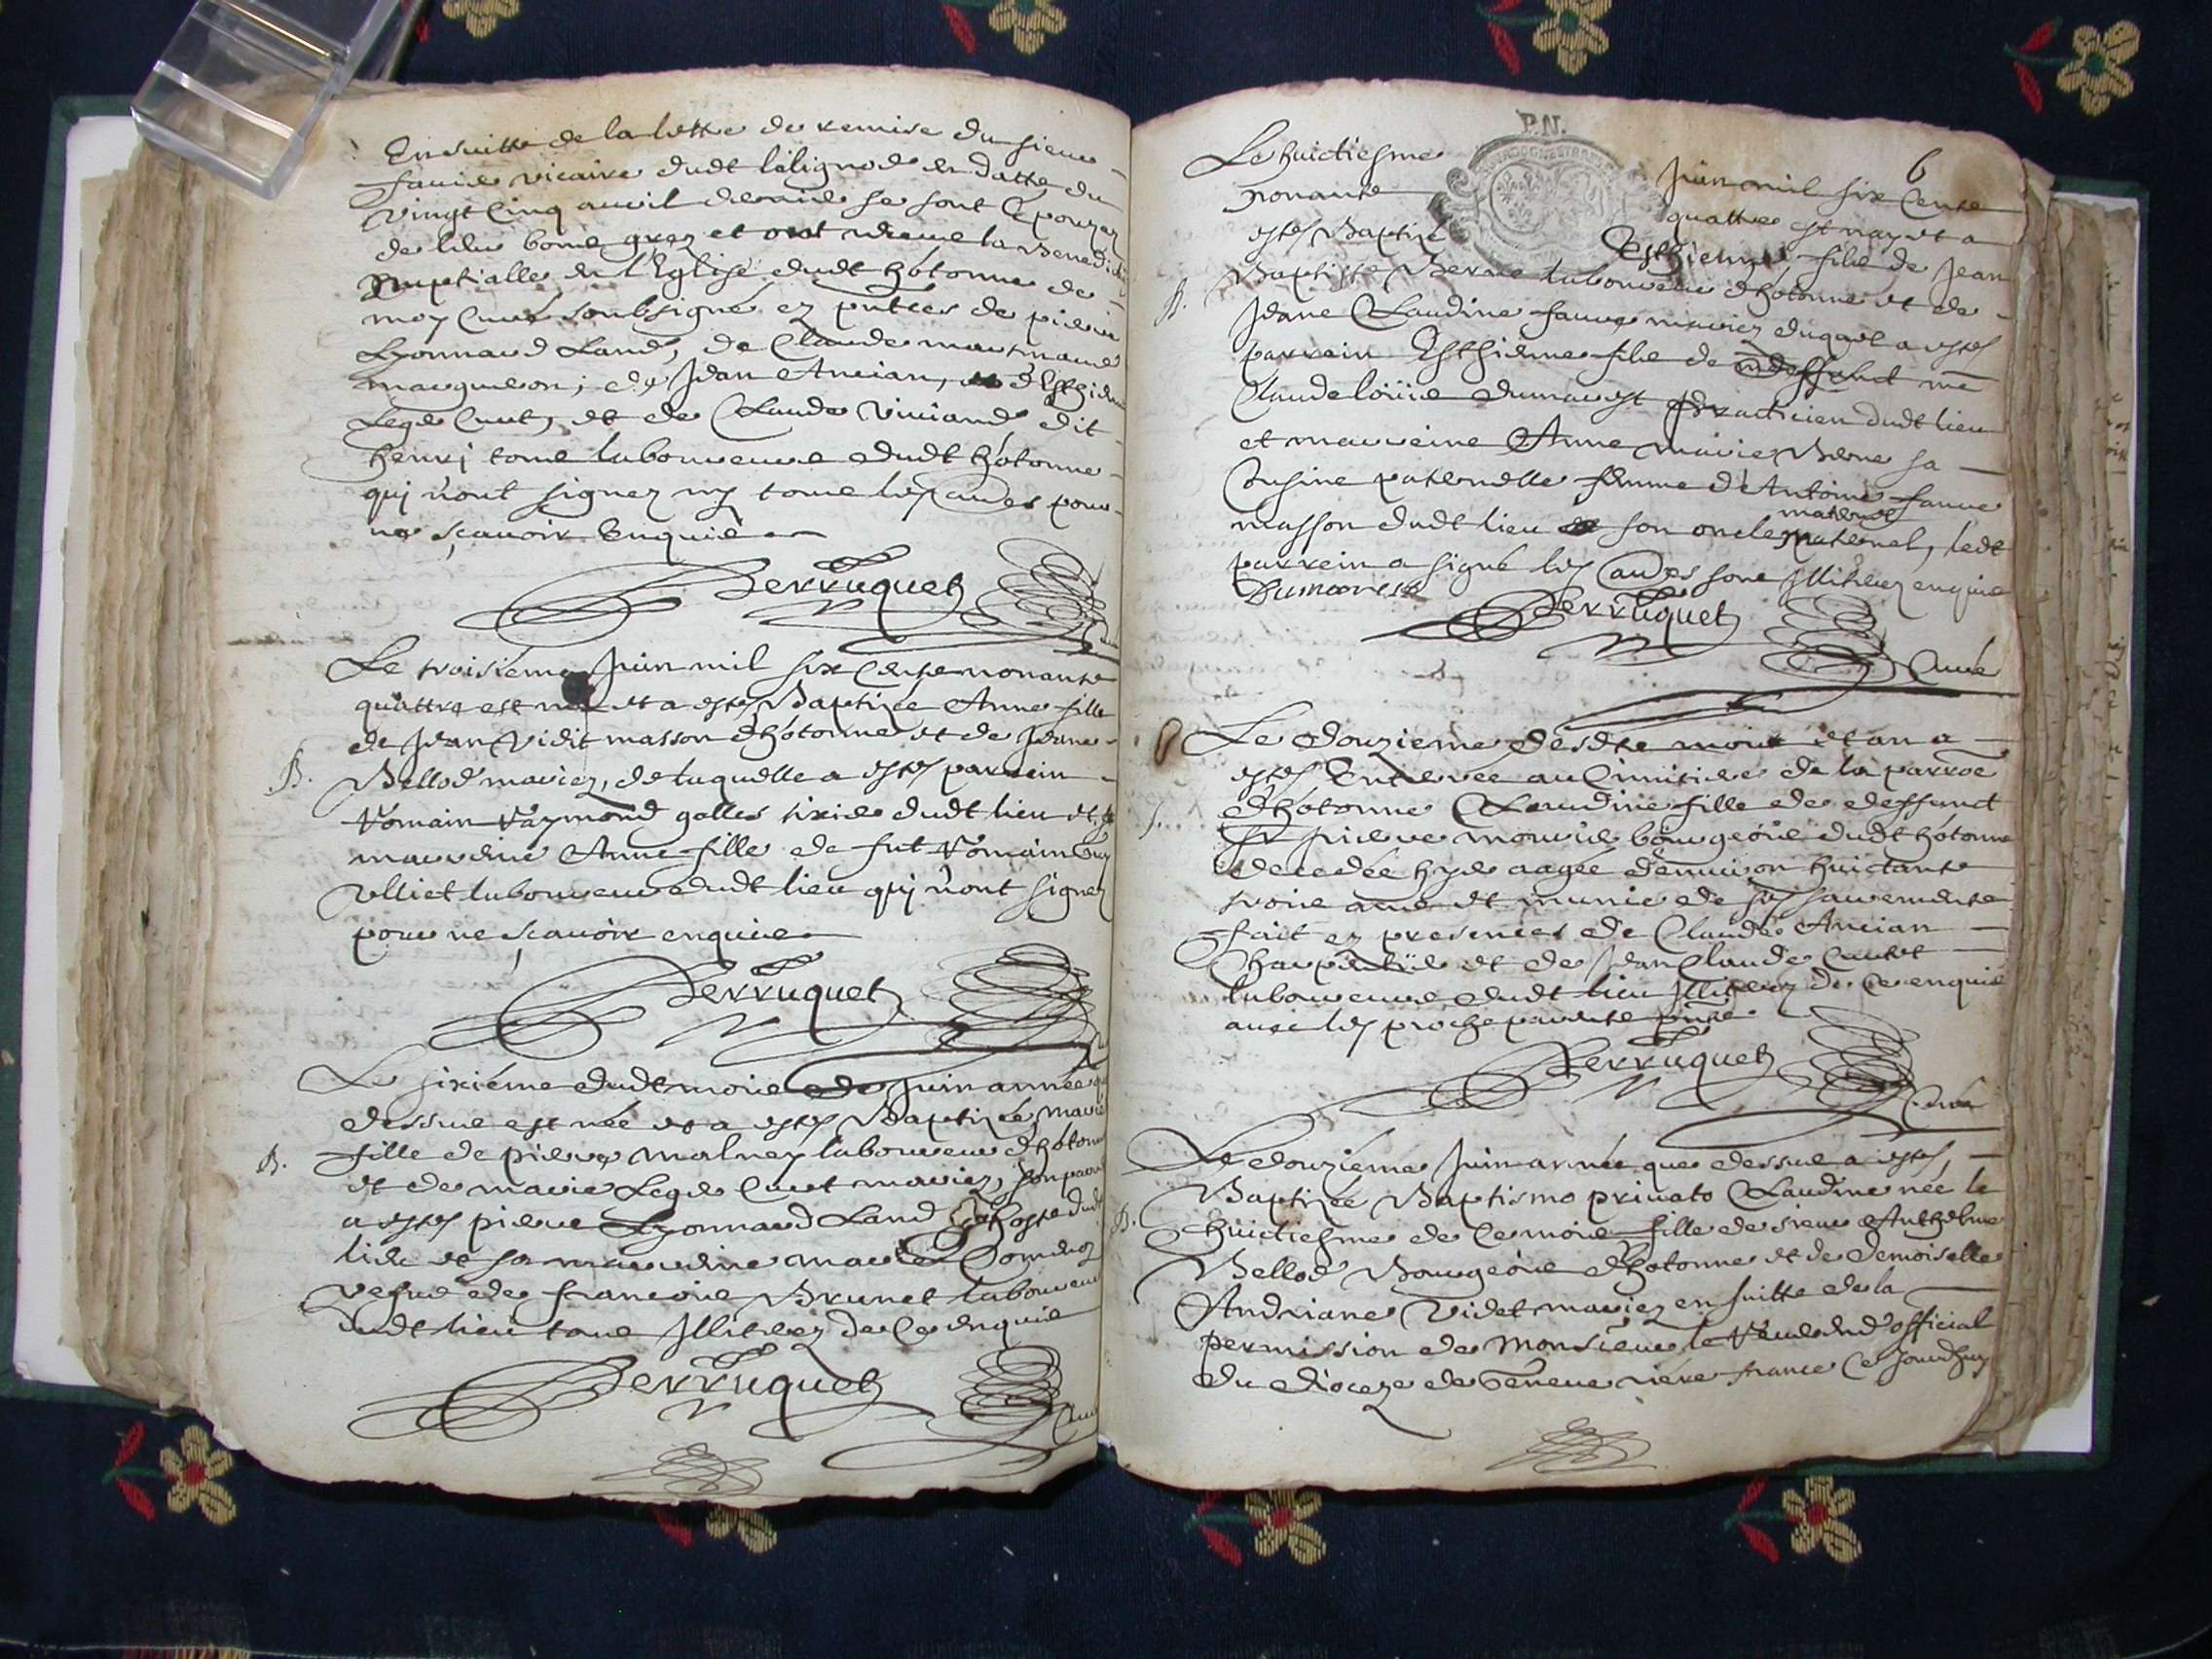 Ensuitte de la lettre de remise du sieur
favier vicaire dudt lelignod en datte du
vingt Cinq avril dernier se sont Epouzez
de leur bome grez et ont receue la Benedi
Nuptialle en l'Eglise dudt hotonne de
moy Curé soubsigné ez pntces de pierre
Lyonnard Land, de Claude
; de Jean Ancian, d'Esthien
Lege Cuet, et de Claude Viviand dit
henrj tous laboureurs dudt hotonne
quj n'ont signez ny tous les parties pour
ne sçavoir Enquis
Perruquet
Le troisiéme Juin mil six Cents nonante
quattre est née et a estez Baptizée Anne fille
de Jean Vidit masson d'hotonne et de Jeane
B. Bellod mariez, de laquelle a estez parrein
Romain Raymond dudt lieu et sa
marreine Anne fille de fut Romain Guy
Ulliet laboureur dudt lieu quj n'ont signez
pour ne sçavoir enquis
Perruquet
Le sixiéme dudt mois de Juin année que
dessus est née et a estez Baptizée, marie
B. fille de pierre malney laboureur d'hotonne
et de marie Lege Cuet mariez, son parrein
a estez pierre Lyonnard Land hoste dudt
lieu et sa marreine marie
vefue de francois Brunet laboureur
dudt lieu tous Illiterez de Ce enquis
Perruquet
P.N.
6
Le huictiesme Juin mil six Cents
nonante quattre est nay et a
estez Baptizé Esthienne fils de Jean
B. Baptiste Berne laboureur d'hotonne et de
Jeane Claudine favre mariez duquel a estez
parrein Esthienne fils de deffunct me
Claude loüis Dumarest Practicien dudt lieu
et marreine Anne marie Berne sa
Cusine paternelle femme d'Antoine favre
maternel
masson dudt lieu son oncle paternel, ledt
parrein a signé les autres sont Illiterez enquis
Dumarest
Perruquet
Curé
Le douziéme desdts mois et an a
estez Enterrée au Cimitiere de la parroe
S. d'hotonne Claudine fille de deffunct
sr pierre mouriel bourgeois dudt hotonne
decedée hyer aagée d'environ huictante
trois ans et munie de ses sacrements
fait ez presences de Claude Ancian
Charpentier et de Jean Claude Carrel
laboureurs dudt lieu Illiterez de Ce enquis
avec les proche parents pnts
Perruquet
Curé
Le douziéme Juin année que dessus a estez
Baptizée Baptismo privato Claudine née le
B. huictiesme de Ce mois fille de sieur Anthelme
Bellod Bourgeois d'hotonne et de demoiselle
Andriane Videt mariez en suitte de la
permission de Monsieur le Reverend official
du dioceze de Geneve riere france Ce Jourdhuy